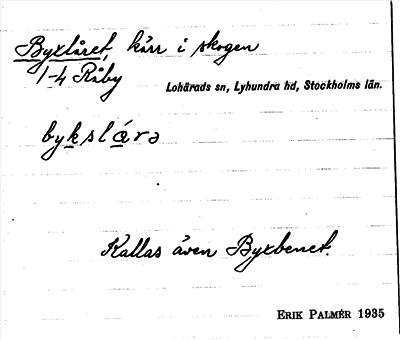 Byxlåret, kärr i skogen
1-4 Råby
Lohärads sn, Lyhundra hd, Stockholms län.
bykslårə
Kallas även Byxbenet.
ERIK PALMÉR 1935